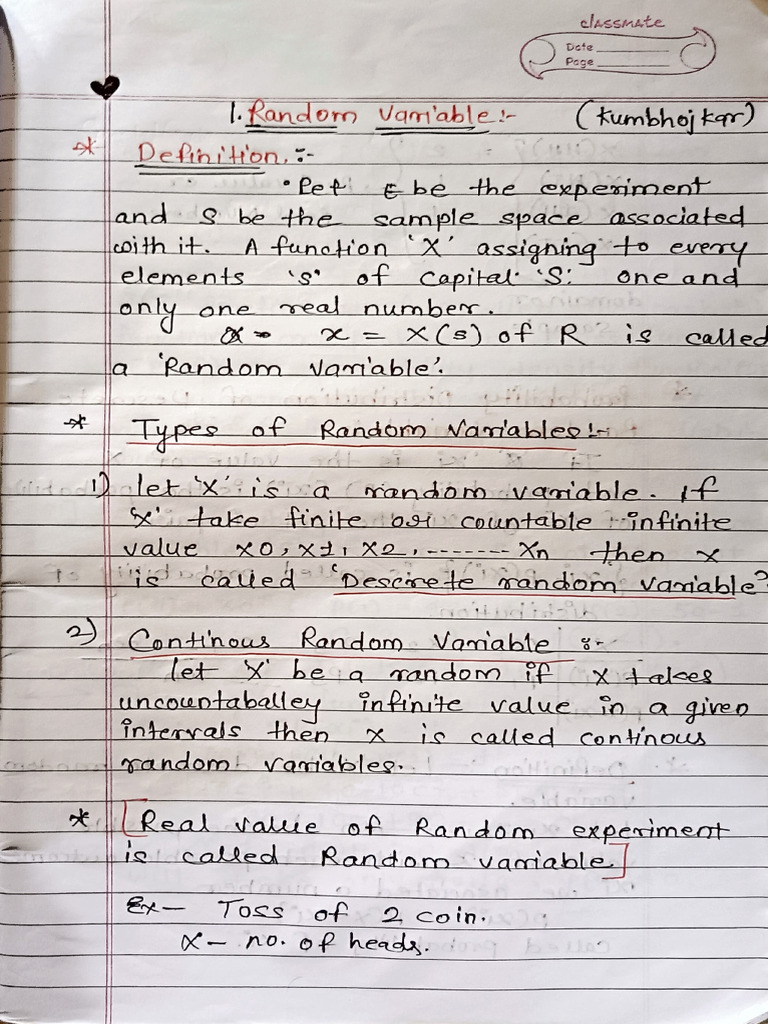 classmate
Date
Page
1. Random Variable :- (Kumbhojkar)
* Definition :-
Let E be the experiment
and S be the sample space associated
with it. A function 'X' assigning to every
elements 's' of capital 'S' one and
only one real number.
x = X(s) of R is called
a 'Random Variable'.
* Types of Random Variables :-
1) let 'X' is a random variable. If
'x' take finite or countable infinite
value x0, x1, x2, ------- xn then x
is called 'Descirete random variable'
2) Continous Random Variable :-
let 'X' be a random if x takes
uncountabally infinite value in a given
intervals then x is called continous
random variables.
* [Real value of Random experiment
is called Random variable.]
Ex- Toss of 2 coin.
x - no. of heads.